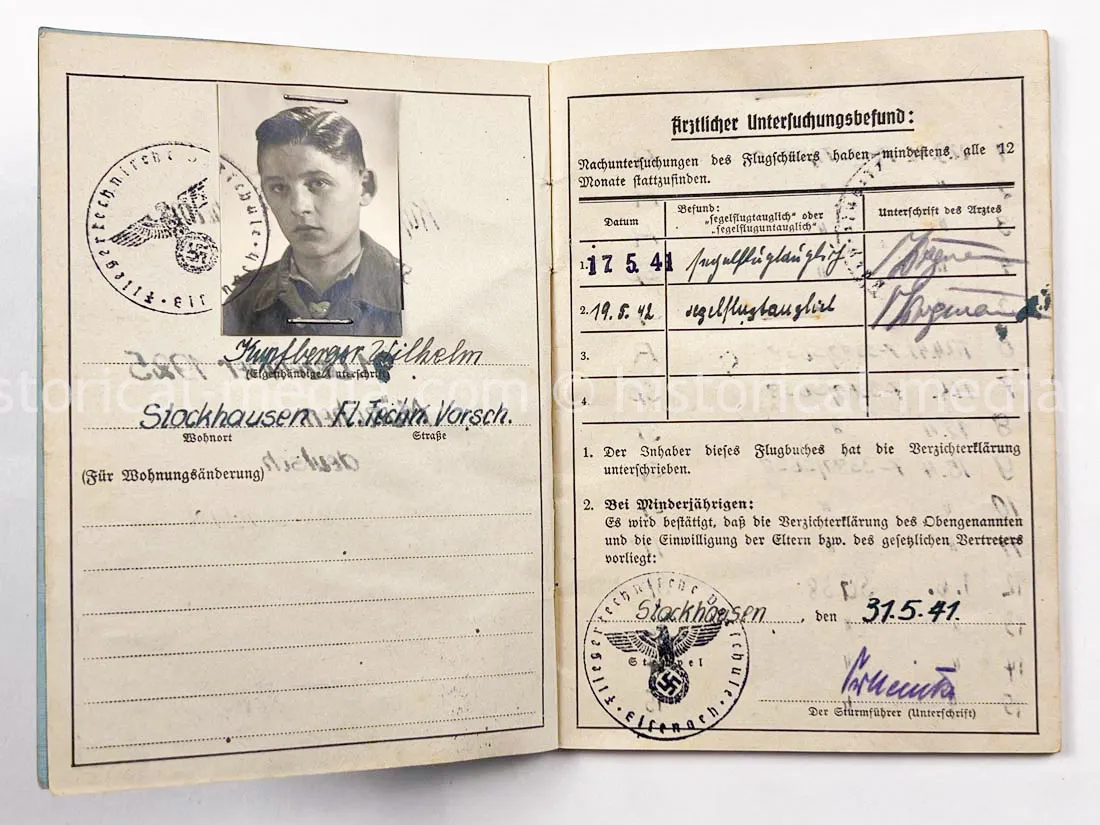 Fliegertechnische Vorschule
Kupfberger Wilhelm
(Eigenhändige Unterschrift)
Stockhausen Fl. Techn. Vorsch.
Wohnort Straße
(Für Wohnungsänderung)
deutsch
1925
Ärztlicher Untersuchungsbefund:
Nachuntersuchungen des Flugschülers haben mindestens alle 12
Monate stattzufinden.
Datum
Befund:
„segelflugtauglich“ oder
„segelfluguntauglich“
Unterschrift des Arztes
1. 17 5. 41 segelflugtauglich
2. 19. 5. 42 segelflugtauglich
3.
4.
1. Der Inhaber dieses Flugbuches hat die Verzichterklärung
unterschrieben.
2. Bei Minderjährigen:
Es wird bestätigt, daß die Verzichterklärung des Obengenannten
und die Einwilligung der Eltern bzw. des gesetzlichen Vertreters
vorliegt:
Stockhausen, den 31.5.41.
Stempel
Fliegertechnische Vorschule
Eisenach
Der Sturmführer (Unterschrift)
historical-media.com © historical-media